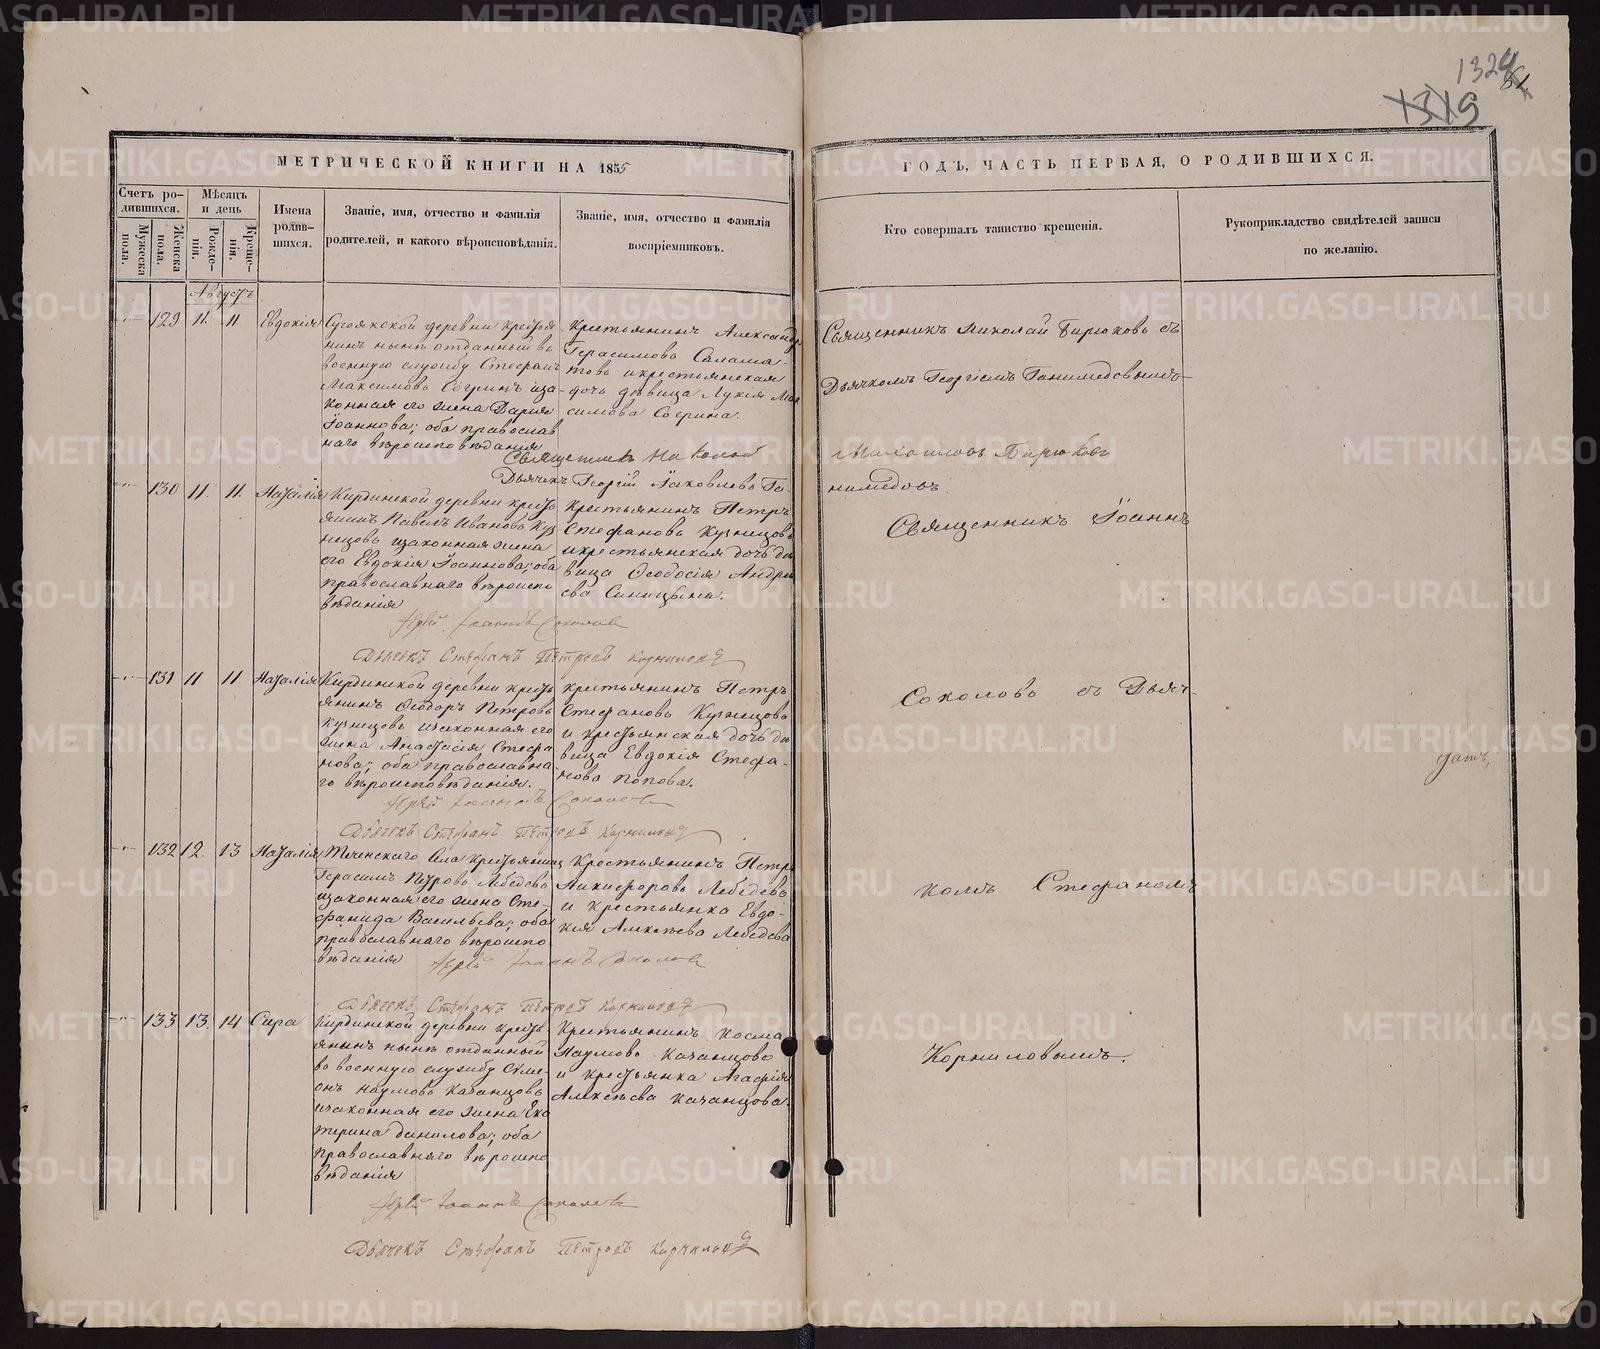 1324
1319
61
МЕТРИЧЕСКОЙ КНИГИ НА 1855
ГОДЪ, ЧАСТЬ ПЕРВАЯ, О РОДИВШИХСЯ.
Счетъ ро-
дившихся.
Мужеска
пола.
Женска
пола.
Мѣсяцъ
и день
Рожде-
нія.
Креще-
нія.
Имена
родив-
шихся.
Званіе, имя, отчество и фамилія
родителей, и какого вѣроисповѣданія.
Званіе, имя, отчество и фамилія
воспріемниковъ.
Кто совершалъ таинство крещенія.
Рукоприкладство свидѣтелей записи
по желанію.
Августъ
129 11. 11. Евдокія
Сугоякской деревни крестья
нинъ нынѣ отданный въ
военную службу Стефанъ
Максимовъ Согринъ иза-
конная его жена Дарія
Іоаннова; оба православ
наго вѣроисповѣданія
Крестьянинъ Александръ
Герасимовъ Салама
товъ икрестьянская
дочь дѣвица Лукія Мак
симова Согрина.
Священникъ Николай Бирюковъ съ
Дьячкомъ Георгіемъ Ганимедовымъ
Священникъ Николай Михайловъ Бирюковъ
Дьячекъ Георгій Іаковлевъ Га-
нимедовъ.
130 11. 11. Наталія
Кирдинской деревни кресть
янинъ Павелъ Ивановъ Куз
нецовъ изаконная жена
его Евдокія Іоаннова; оба
православнаго вѣроиспо
вѣданія
Крестьянинъ Петръ
Стефановъ Кузнецовъ
икрестьянская дочь дѣ
вица Ѳеодосія Андре
ева Синицына.
Священникъ Іоаннъ
Іерей Іоаннъ Соколовъ
Дьячекъ Стефанъ Петровъ Корниловъ
131 11 11 Наталія
Кирдинской деревни кресть
янинъ Ѳеодоръ Петровъ
Кузнецовъ изаконная его
жена Анастасія Стефа
нова; оба православна
го вѣроисповѣданія.
крестьянинъ Петръ
Стефановъ Кузнецовъ
и крестьянская дочь дѣ
вица Евдокія Стефа-
нова Попова.
Соколовъ съ Дьяч-
Іерей Іоаннъ Соколовъ
Дьячекъ Стефанъ Петровъ Корниловъ
132 12. 13 Наталія
Теченскаго Села крестьянинъ
Герасимъ Петровъ Лебедевъ
изаконная его жена Сте-
фанида Васильева; оба
православнаго вѣроиспо
вѣданія
Крестьянинъ Петръ
Никифоровъ Лебедевъ
и крестьянка Евдо-
кія Алексѣева Лебедева
комъ Стефаномъ
Іерей Іоаннъ Соколовъ
Дьячекъ Стефанъ Петровъ Корниловъ
133 13. 14 Сира
Кирдинской деревни кресть
янинъ нынѣ отданный
въ военную службу Симе-
онъ Наумовъ Качанцовъ
изаконная его жена Ека
терина Данилова; оба
православнаго вѣроиспо
вѣданія
Крестьянинъ Косма
Наумовъ Качанцовъ
и крестьянка Агафія
Алексѣева Качанцова.
Корниловымъ.
Іерей Іоаннъ Соколовъ
Дьячекъ Стефанъ Петровъ Корниловъ
METRIKI.GASO-URAL.RU